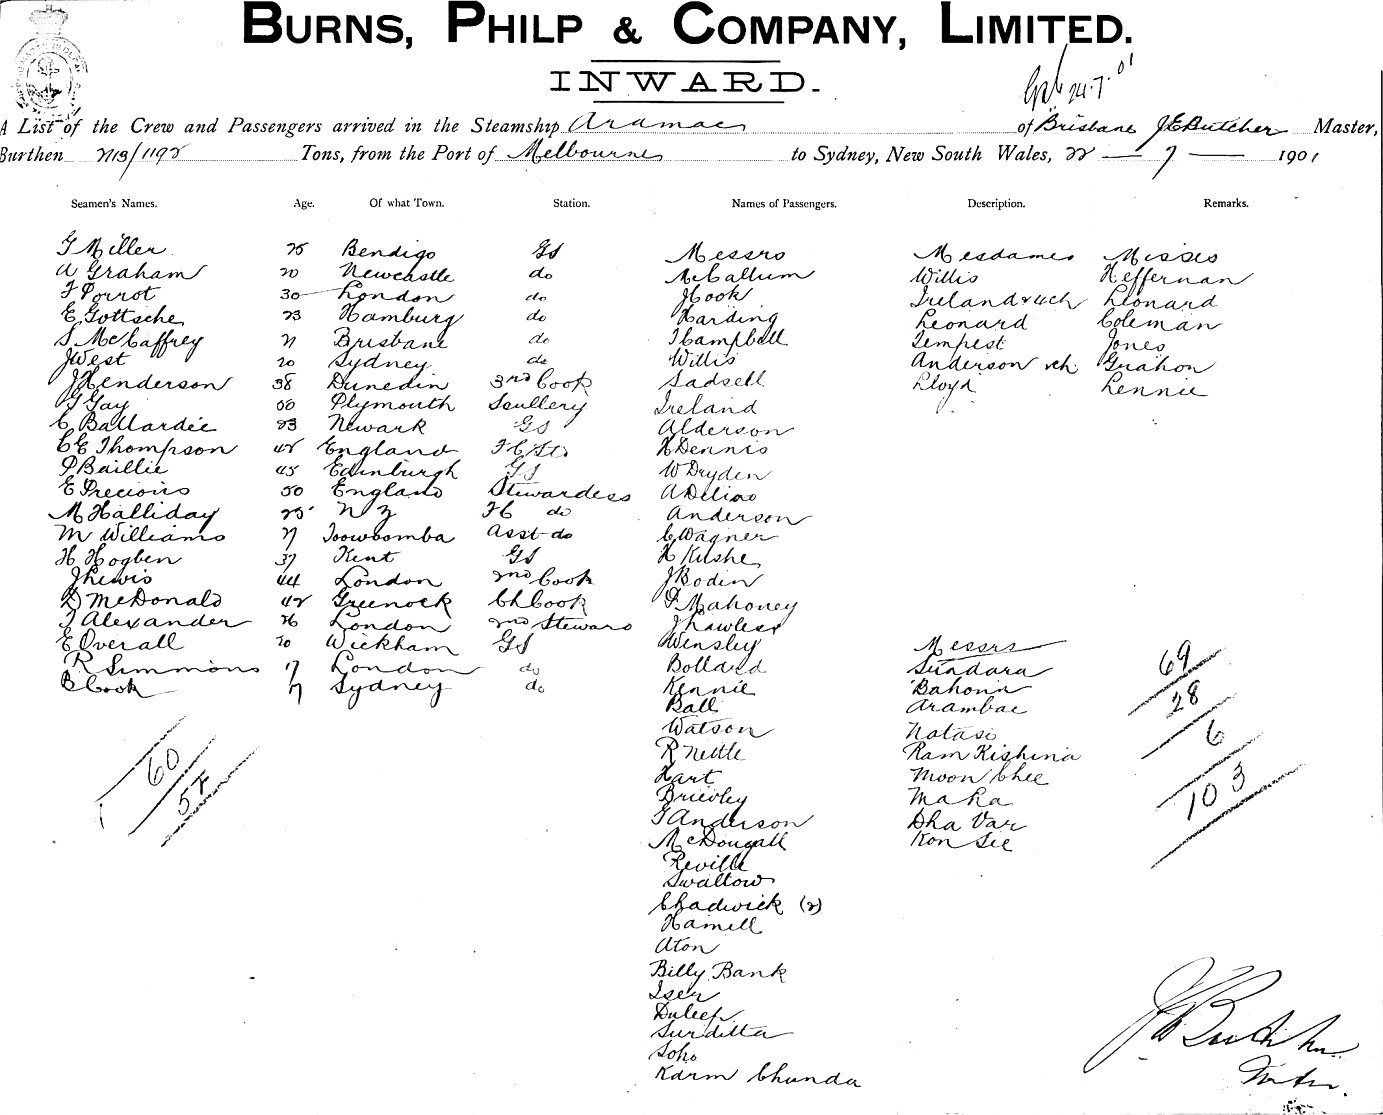 BURNS, PHILP & COMPANY, LIMITED.
INWARD.
24.7.01
A List of the Crew and Passengers arrived in the Steamship Aramac of Brisbane J E Butcher Master,
Burthen 2113/1192 Tons, from the Port of Melbourne to Sydney, New South Wales, 22 — 7 — 1901
Seamen's Names. Age. Of what Town. Station. Names of Passengers. Description. Remarks.
G Miller 25 Bendigo GS Messrs Mesdames Misses
A Graham 20 Newcastle do McCallum Willis Heffernan
F Porrot 30 London do J Cook Ireland & 4ch Leonard
E Gottsche 23 Hamburg do Harding Leonard Coleman
S McCaffrey 21 Brisbane do J Campbell Tempest Jones
J West 20 Sydney do Willis Anderson & ch Grahon
J Henderson 38 Dunedin 3rd Cook Sadsell Lloyd Lennie
G Gay 50 Plymouth Scullery Ireland
C Ballardie 23 Newark GS Alderson
C E Thompson 42 England FC/St. H Dennis
P Baillie 45 Edinburgh GS W Dryden
E Precious 50 England Stewardess A Delias
M Halliday 25 N Z FC do Anderson
M Williams 27 Toowoomba Asst do C Wagner
H Hogben 37 Kent GS H Kushe
J Lewis 44 London 2nd Cook J Bodin
D McDonald 42 Greenock Ch Cook P Mahoney
J Alexander 26 London 2nd Steward J Lawless
E Overall 20 Wickham GS Winsley Messrs
R Simmons 17 London do Bolland Sundara 69
B Cook 17 Sydney do Kennie Bahonia 28
Ball Arambac
Watson Natasi 6
R Nettle Ram Kishina
60 Hart Moon Chee 103
57 Brierley Maha
G Anderson Dha Var
McDougall Kon See
Reville
Swallow
Chadwick (2)
Hamell
Aton
Billy Bank
Iser
Duleep
Surditta
Soho
Karm Chunda
J E Butcher
Master.